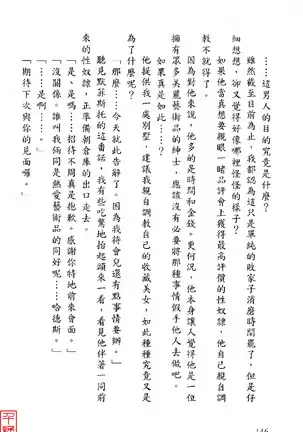 ……這男人的目的究竟是什麼？
雖然截至目前為止，我都認為這只是單純的敗家子消磨時間罷了，但是仔
細想想，卻又覺得好像哪裡怪怪的樣子？
如果他當真想要親眼一睹品評會上獲得最高評價的性奴隸，他自己親自調
教不就得了。
因為對他來說，他多的是時間和金錢。更何況，他本身讓人覺得他是一位
擁有眾多美麗藝術品的紳士，應該沒有必要將那種事情假手他人去做吧。
如果真是如此……
他提供我一處別墅，建議我親自調教自己的收藏美女，如此種種究竟又是
為了什麼呢？
「那麼……今天就此告辭了。因為我待會兒還有點事情要辦。」
聽見默菲斯托的這番話，我有些吃驚地抬起頭來一看，看見他伴著一同前
來的性奴隸，正準備朝倉庫的出口走去。
「是、是嗎……招待不周真是抱歉。感謝你特地前來會面。」
「沒關係。誰叫我倆同是熱愛藝術品的同好呢……哈德斯。」
「……是啊……。」
「期待下次與你的見面囉。」
146